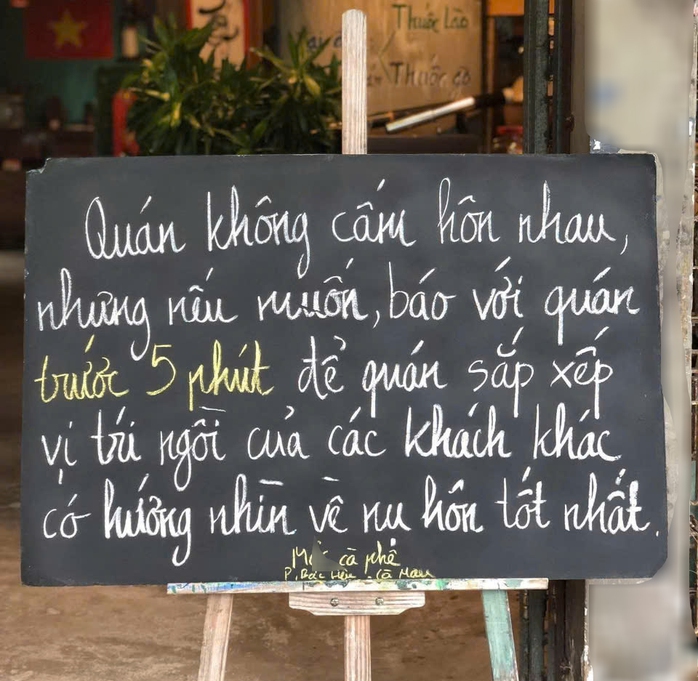 Thuốc Lào
Thuốc gò
Quán không cấm hôn nhau,
nhưng nếu muốn, báo với quán
trước 5 phút để quán sắp xếp
vị trí ngồi của các khách khác
có hướng nhìn về nụ hôn tốt nhất.
cà phê
Cà Mau